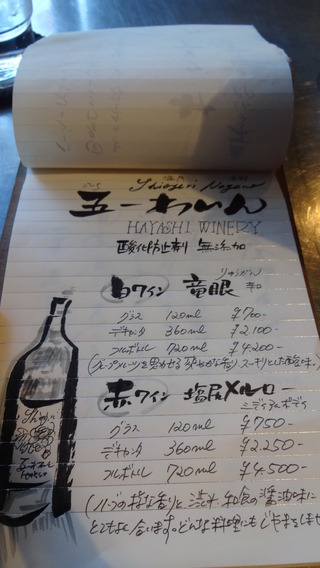 Shiojiri Nagano
五一わいん
HAYASHI WINERY
酸化防止剤 無添加
りゅうがん
白ワイン 竜眼 辛口
グラス 120ml ¥700-
デキャンタ 360ml ¥2.100-
フルボトル 720ml ¥4.200-
(グレープフルーツを思わせる 爽やかな香り スーキリとした酸味。)
赤ワイン 塩尻メルロー
ミディアムボディ
グラス 120ml ¥750-
デキャンタ 360ml ¥2.250-
フルボトル 720ml ¥4.500-
(ハーブの様な香りと 渋み 和食の醤油味に
とてもよく合います。どんな料理にもじゃましませ